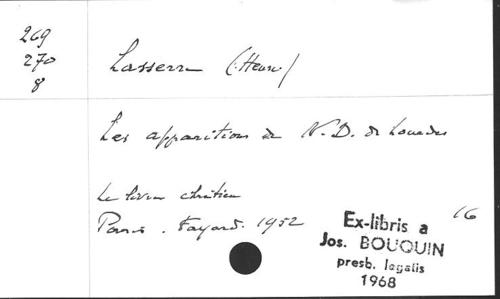 269
270
8
Lasserre (Henri)
Les apparitions de N.D. de Lourdes
Le livre chrétien
Paris. Fayard. 1952
16
Ex-libris a
Jos. BOUQUIN
presb. legatis
1968